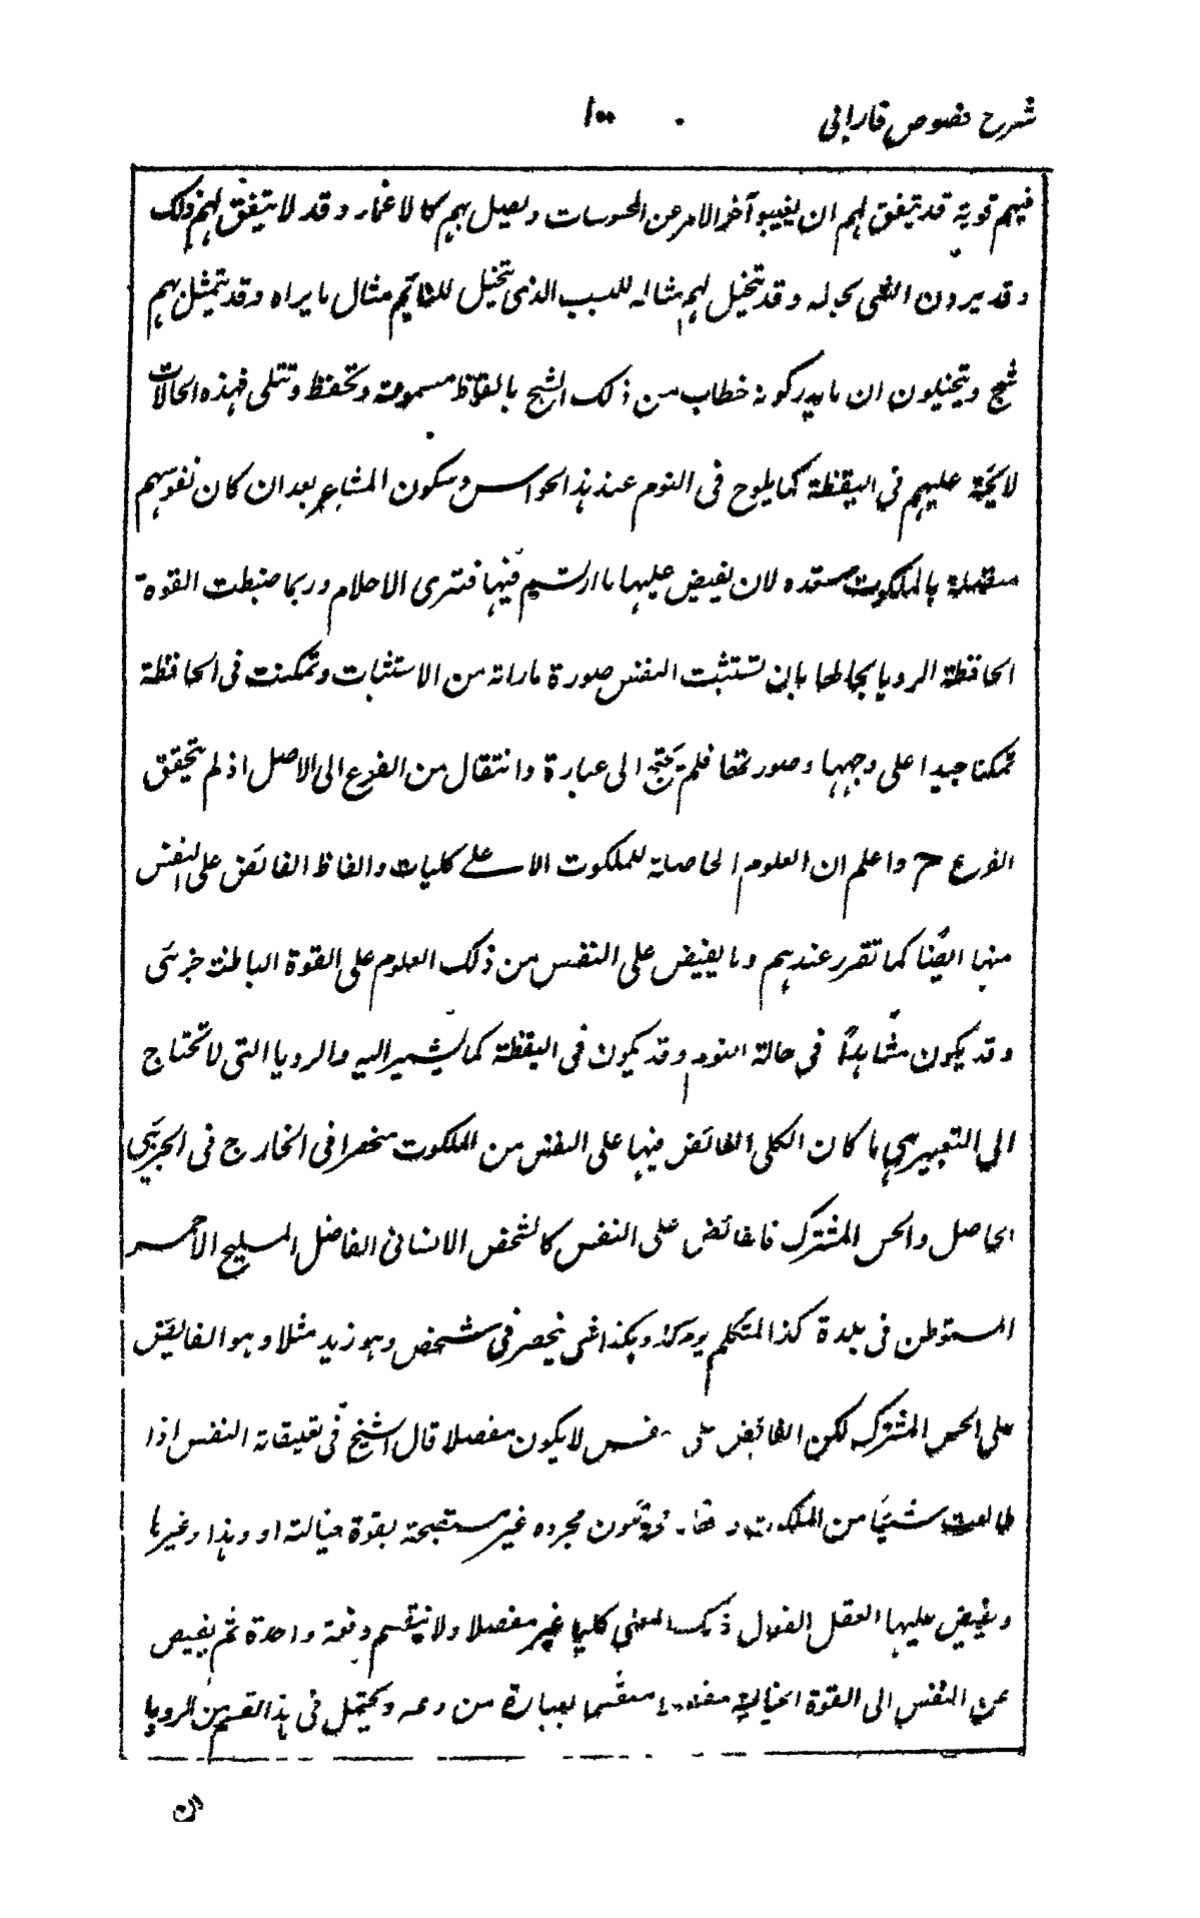 شرح فصوص فارابی ١٠٠
فيهم قوية قد يتفق لهم ان يغيبوا آخر الامر عن المحسوسات و يصل بهم كالاغماء و قد لا يتفق لهم ذلك
و قد يرون الشی بحاله و قد يتخيل لهم مثاله للسبب الذی يتخيل للنائم مثال ما يراه و قد يتمثل لهم
شبح و يتخيلون ان ما يدركونه خطاب من ذلك الشبح بالفاظ مسموعة و تحفظ و تتلی فهذه الحالات
لائحة عليهم فی اليقظة كما يلوح فی النوم عند هذ الحواس و سكون المشاعر بعد ان كان نفوسهم
متصلة بالملكوت مستعده لان يفيض عليها ما ارتسم فيها فتری الاحلام و ربما ضبطت القوة
الحافظة الرويا بحالها بان تستثبت النفس صورة ماراته من الاستثبات و تمكنت فی الحافظة
تمكنا جيدا علی وجهها و صورتها فلم تحتج الی عبارة و انتقال من الفرع الی الاصل اذ لم يتحقق
الفرع ح و اعلم ان العلوم الحاصلة للملكوت الاعلے كليات و الفاظ الفائض علی النفس
منها ايضا كما تقرر عندهم و ما يفيض علی النفس من ذلك العلوم علی القوة الباطنة جزئی
و قد يكون مشاهدا فی حالة النوم و قد يكون فی اليقظة كما يشير اليه و الرويا التی لا تحتاج
الی التعبير هی ما كان الكلی الفائض فيها علی النفس من الملكوت منحصرا فی الخارج فی الجزئی
الحاصل و الحس المشترك فالفائض علی النفس كالشخص الانسانی الفاضل المليح الاحمر
المستوطن فی بلدة كذا المتكلم يوم كذا و هكذا شی ينحصر فی شخص و هو زيد مثلا و هو الفائض
علی الحس المشترك لكن الفائض علی نفس لا يكون مفصلا قال الشيخ فی تعليقاته النفس اذا
طالعت شيئا من الملكوت مجرده غير مستصحبة بقوة خيالته او وهذا و غيرها
و يفيض عليها العقل الفعال ذلك المعنی كليا غير مفصلا و لا ينقسم دفعة واحدة ثم يفيض
عن النفس الی القوة الخيالية منقسما بعبارة من و يحتمل فی هذ القسم من الرويا